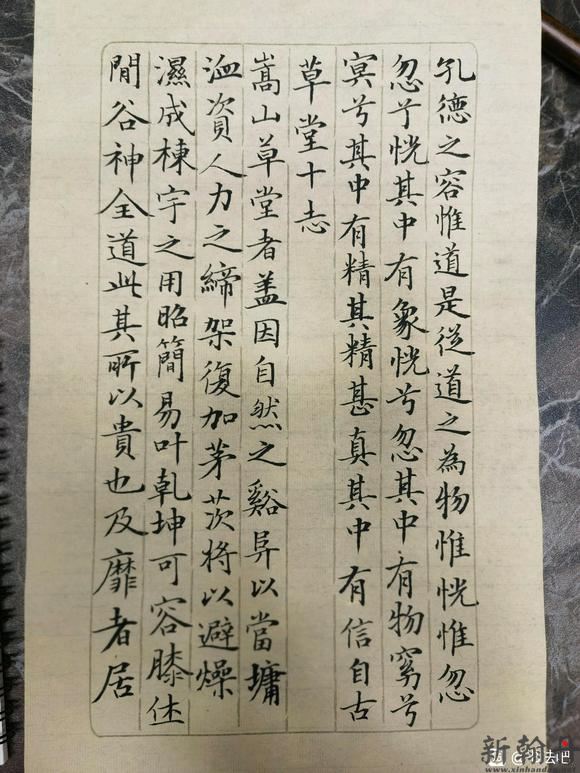 孔德之容惟道是從道之為物惟恍惟忽
忽兮恍其中有象恍兮忽其中有物窈兮
冥兮其中有精其精甚真其中有信自古
草堂十志
嵩山草堂者盖因自然之谿阜以當墉
洫資人力之締架復加茅茨將以避燥
濕成棟宇之用昭簡易叶乾坤可容膝休
閒谷神全道此其所以貴也及靡者居
新翰